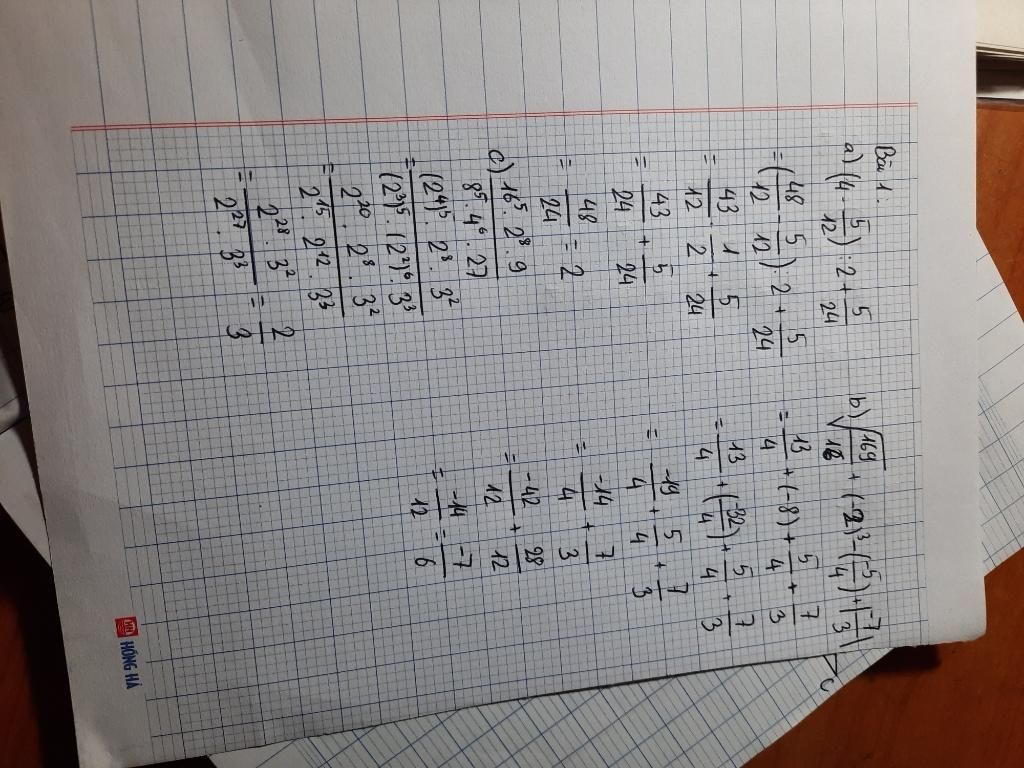 Bài 1:
a) (4 - 5/12) : 2 + 5/24
= (48/12 - 5/12) : 2 + 5/24
= 43/12 · 1/2 + 5/24
= 43/24 + 5/24
= 48/24 = 2
c) 16⁵ . 2⁸ . 9 / 8⁵ . 4⁶ . 27
= (2⁴)⁵ . 2⁸ . 3² / (2³)⁵ . (2²)⁶ . 3³
= 2²⁰ . 2⁸ . 3² / 2¹⁵ . 2¹² . 3³
= 2²⁸ . 3² / 2²⁷ . 3³ = 2/3
b) √169/16 + (-2)³ - (-5/4) + |-7/3|
= 13/4 + (-8) + 5/4 + 7/3
= 13/4 + (-32/4) + 5/4 + 7/3
= -19/4 + 5/4 + 7/3
= -14/4 + 7/3
= -42/12 + 28/12
= -14/12 = -7/6
HỒNG HÀ